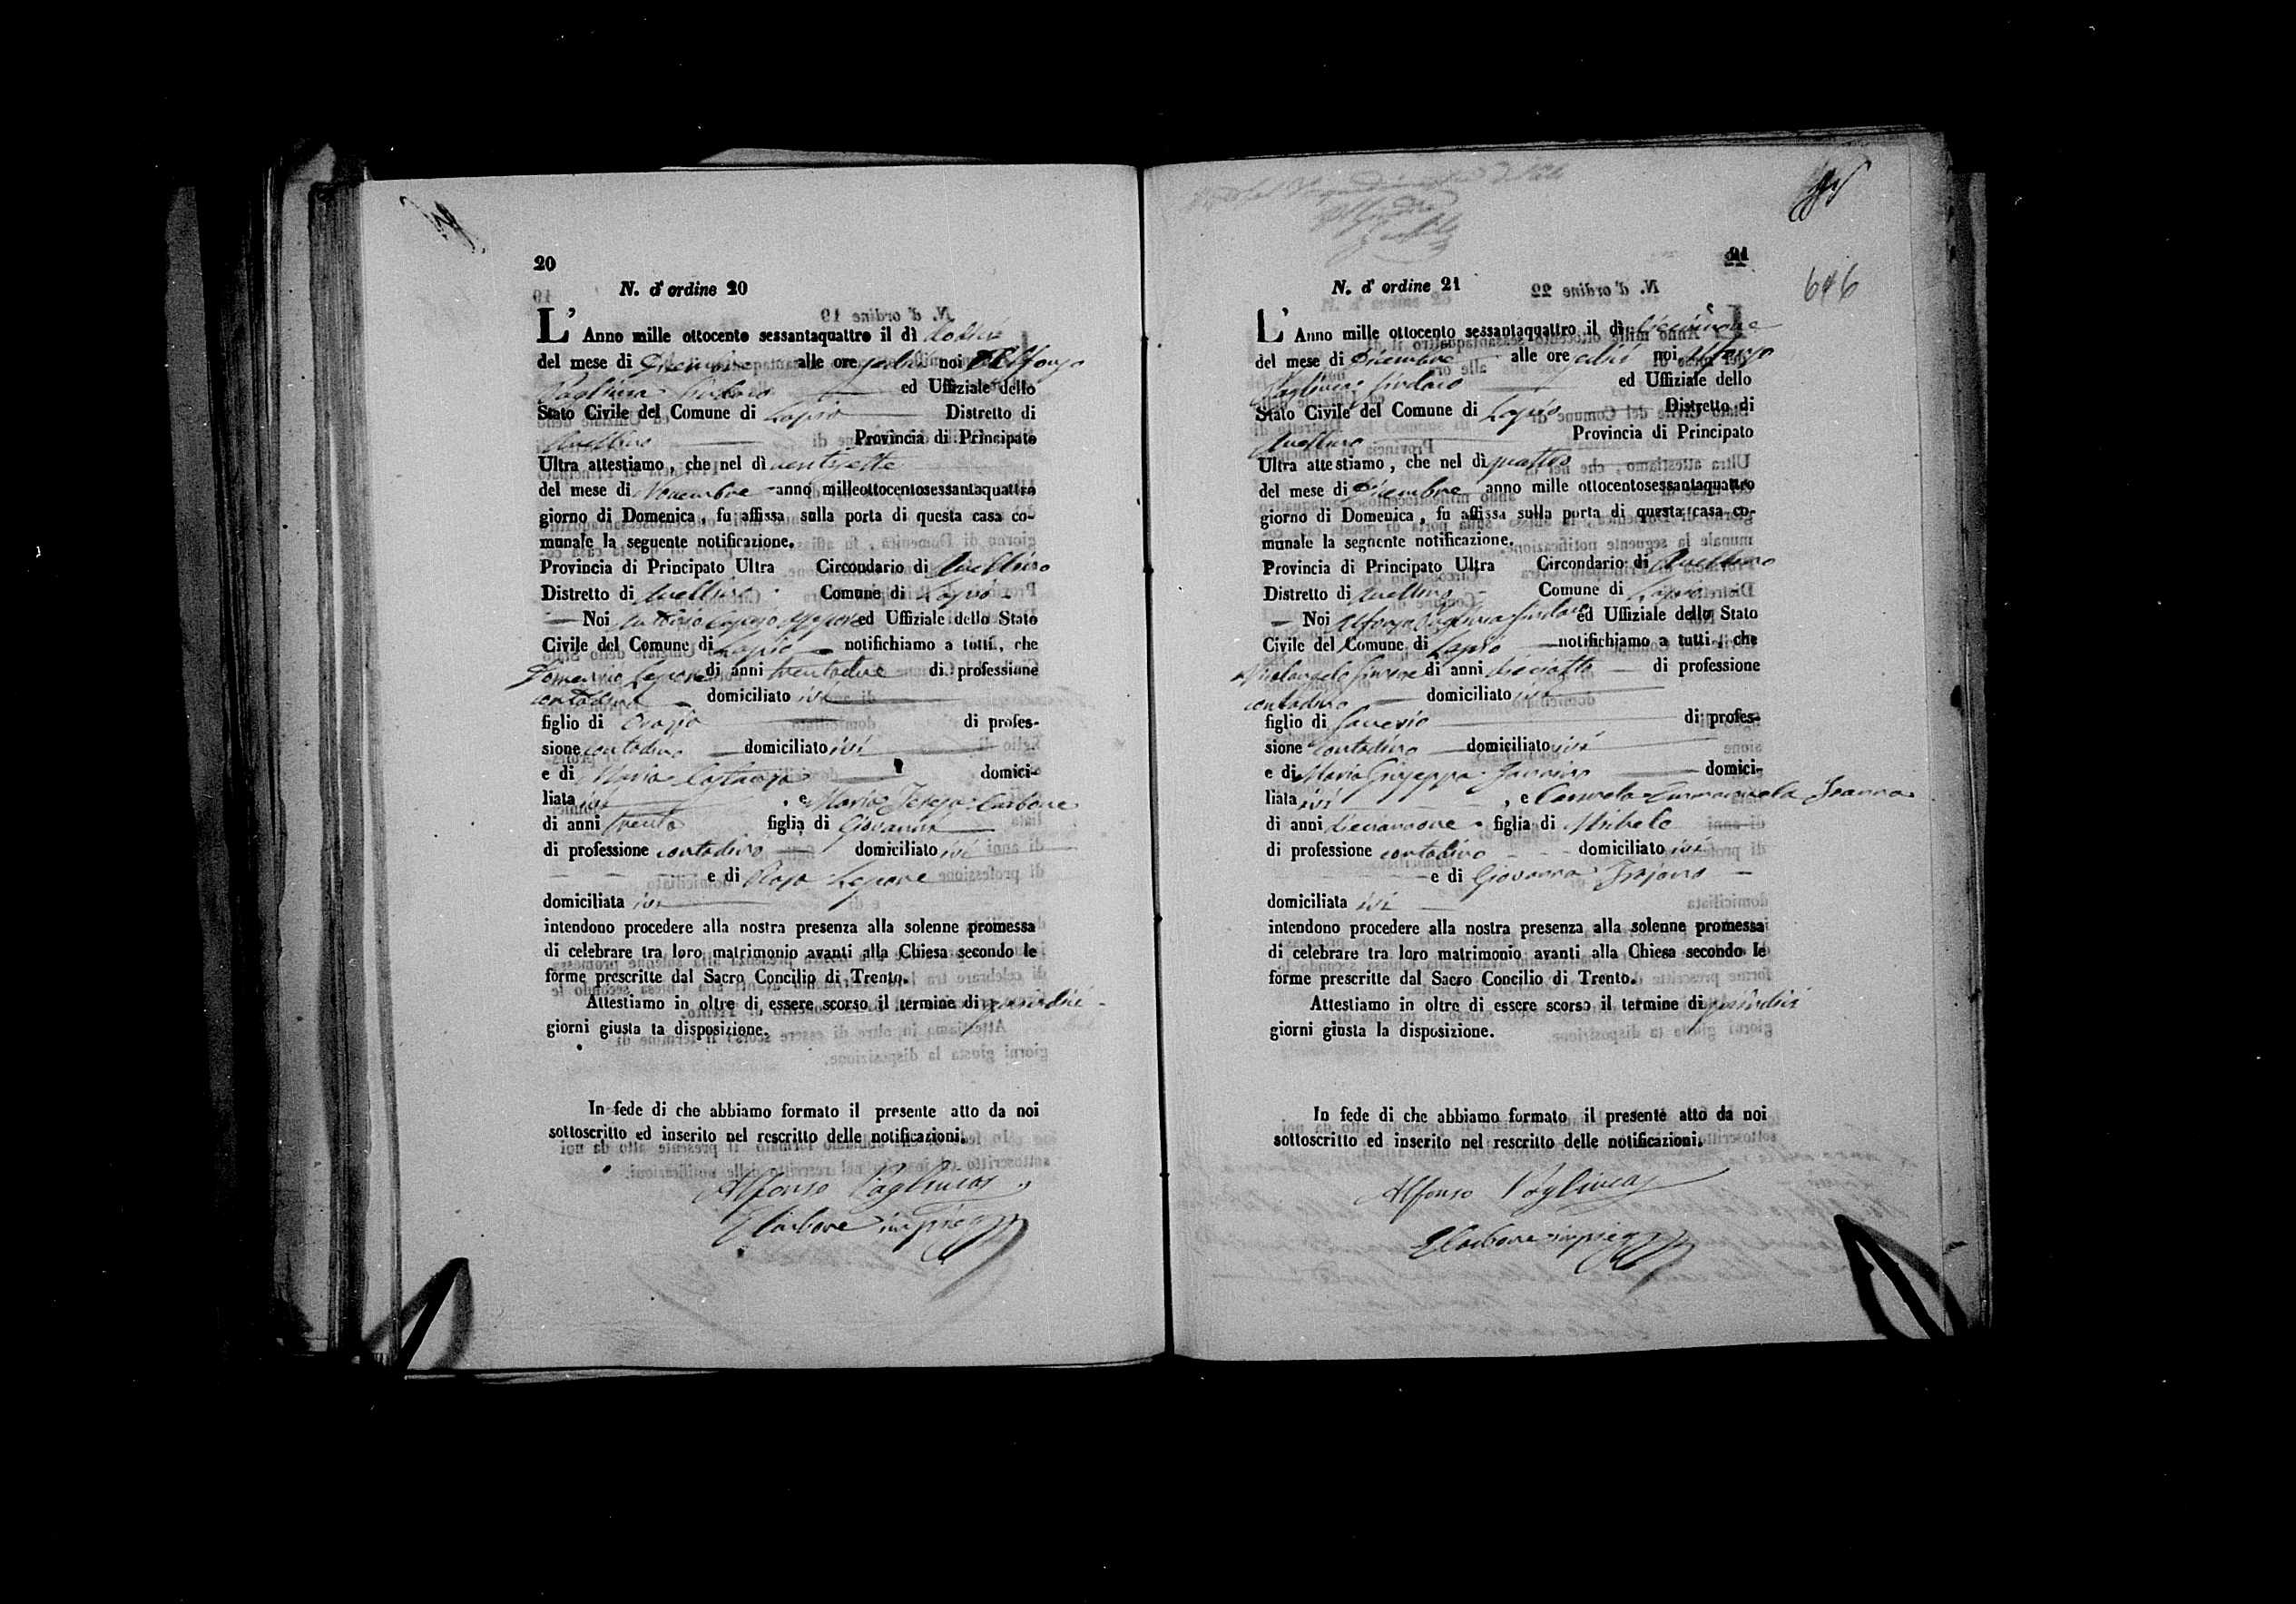 20
N. d' ordine 20
L' Anno mille ottocento sessantaquattro il dì dodici
del mese di Dicembre alle ore sedici noi Alfonso
Pagliuca Sindaco ed Uffiziale dello
Stato Civile del Comune di Lapio Distretto di
Avellino Provincia di Principato
Ultra attestiamo, che nel dì ventisette
del mese di Novembre anno milleottocentosessantaquattro
giorno di Domenica, fu affissa sulla porta di questa casa co-
munale la seguente notificazione.
Provincia di Principato Ultra Circondario di Avellino
Distretto di Avellino Comune di Lapio
Noi ed Uffiziale dello Stato
Civile del Comune di Lapio notifichiamo a tutti, che
Domenico Lepore di anni trentadue di professione
contadino domiciliato ivi
figlio di Orazio di profes-
sione contadino domiciliato ivi
e di Maria Costanza domici-
liata ivi, e Maria Teresa Carbone
di anni trenta figlia di Giovanni
di professione contadino domiciliato ivi
e di Rosa Lepore
domiciliata ivi
intendono procedere alla nostra presenza alla solenne promessa
di celebrare tra loro matrimonio avanti alla Chiesa secondo le
forme prescritte dal Sacro Concilio di Trento.
Attestiamo in oltre di essere scorso il termine di quindici
giorni giusta ta disposizione.
In fede di che abbiamo formato il presente atto da noi
sottoscritto ed inserito nel rescritto delle notificazioni.
Alfonso Pagliuca
Carbone
21
646
N. d' ordine 21
L' Anno mille ottocento sessantaquattro il dì diecinnove
del mese di Dicembre alle ore sedici noi Alfonso
Pagliuca Sindaco ed Uffiziale dello
Stato Civile del Comune di Lapio Distretto di
Avellino Provincia di Principato
Ultra attestiamo, che nel dì quattro
del mese di Dicembre anno mille ottocentosessantaquattro
giorno di Domenica, fu affissa sulla porta di questa casa co-
munale la segnente notificazione.
Provincia di Principato Ultra Circondario di Avellino
Distretto di Avellino Comune di Lapio
Noi Alfonso Pagliuca Sindaco ed Uffiziale dello Stato
Civile del Comune di Lapio notifichiamo a tutti, che
Michelangelo di anni dieciotto di professione
contadino domiciliato ivi
figlio di Saverio di profes-
sione contadino domiciliato ivi
e di Maria Giuseppa domici-
liata ivi, e Carmela Emmanuela
di anni diecinnove figlia di Michele
di professione contadino domiciliato ivi
e di Giovanna Trojano
domiciliata ivi
intendono procedere alla nostra presenza alla solenne promessa
di celebrare tra loro matrimonio avanti alla Chiesa secondo le
forme prescritte dal Sacro Concilio di Trento.
Attestiamo in oltre di essere scorso il termine di quindici
giorni giusta la disposizione.
In fede di che abbiamo formato il presente atto da noi
sottoscritto ed inserito nel rescritto delle notificazioni.
Alfonso Pagliuca
Carbone